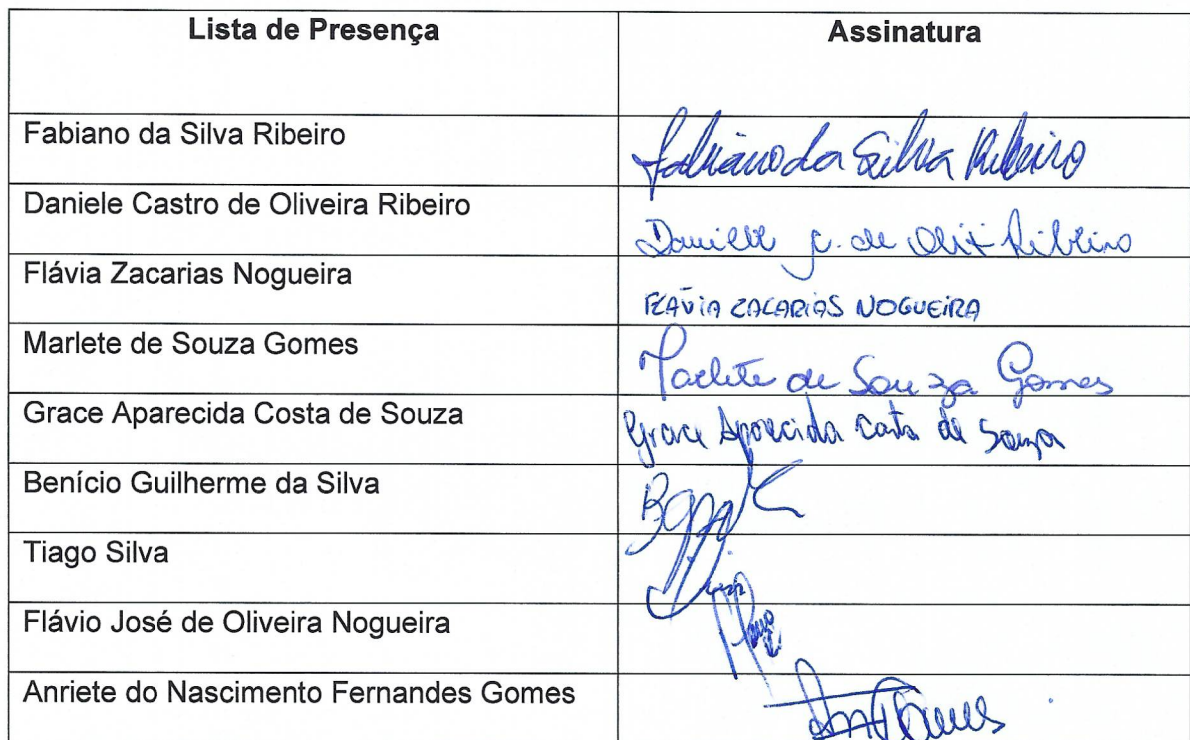 Lista de Presença Assinatura
Fabiano da Silva Ribeiro Fabiano da Silva Ribeiro
Daniele Castro de Oliveira Ribeiro Daniele C. de Ribeiro
Flávia Zacarias Nogueira FLÁVIA ZACARIAS NOGUEIRA
Marlete de Souza Gomes Marlete de Souza Gomes
Grace Aparecida Costa de Souza Grace Aparecida Costa de Souza
Benício Guilherme da Silva
Tiago Silva
Flávio José de Oliveira Nogueira
Anriete do Nascimento Fernandes Gomes